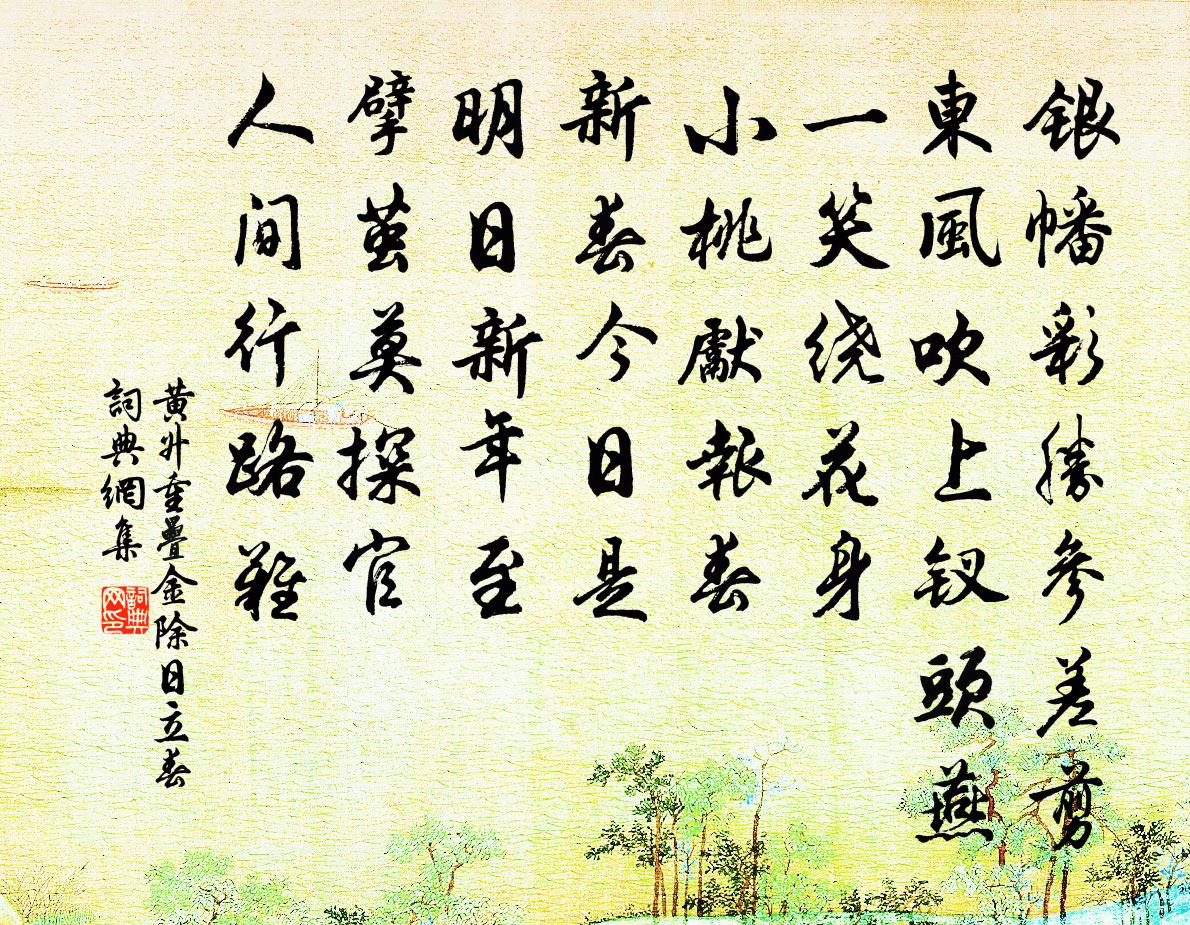 銀幡彩勝參差剪
東風吹上釵頭燕
一笑绕花身
小桃獻報春
新春今日是
明日新年至
擘茧莫探官
人间行路難
黄升重疊金除日立春
詞典網集
詞典网印